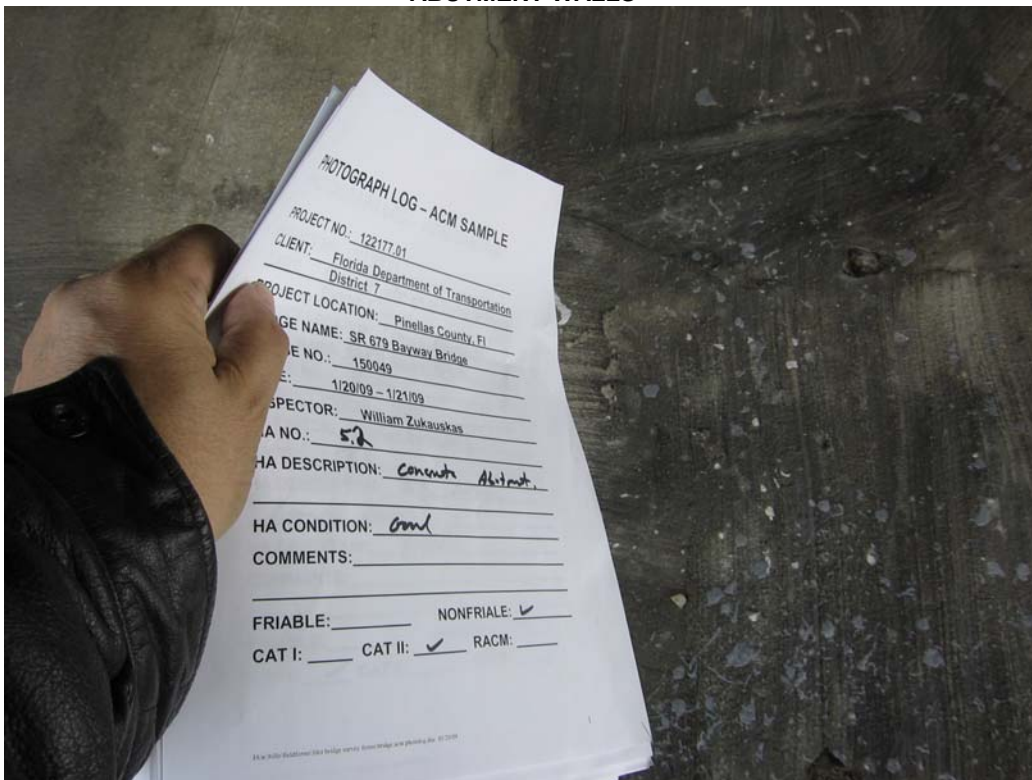 ABUTMENT WALLS
PHOTOGRAPH LOG – ACM SAMPLE
PROJECT NO.: 122177.01
CLIENT: Florida Department of Transportation
District 7
PROJECT LOCATION: Pinellas County, Fl
GE NAME: SR 679 Bayway Bridge
E NO.: 150049
E: 1/20/09 – 1/21/09
SPECTOR: William Zukauskas
A NO.: 5.2
HA DESCRIPTION: Concrete
HA CONDITION: Good
COMMENTS:
FRIABLE: NONFRIALE: ✓
CAT I: CAT II: ✓ RACM: